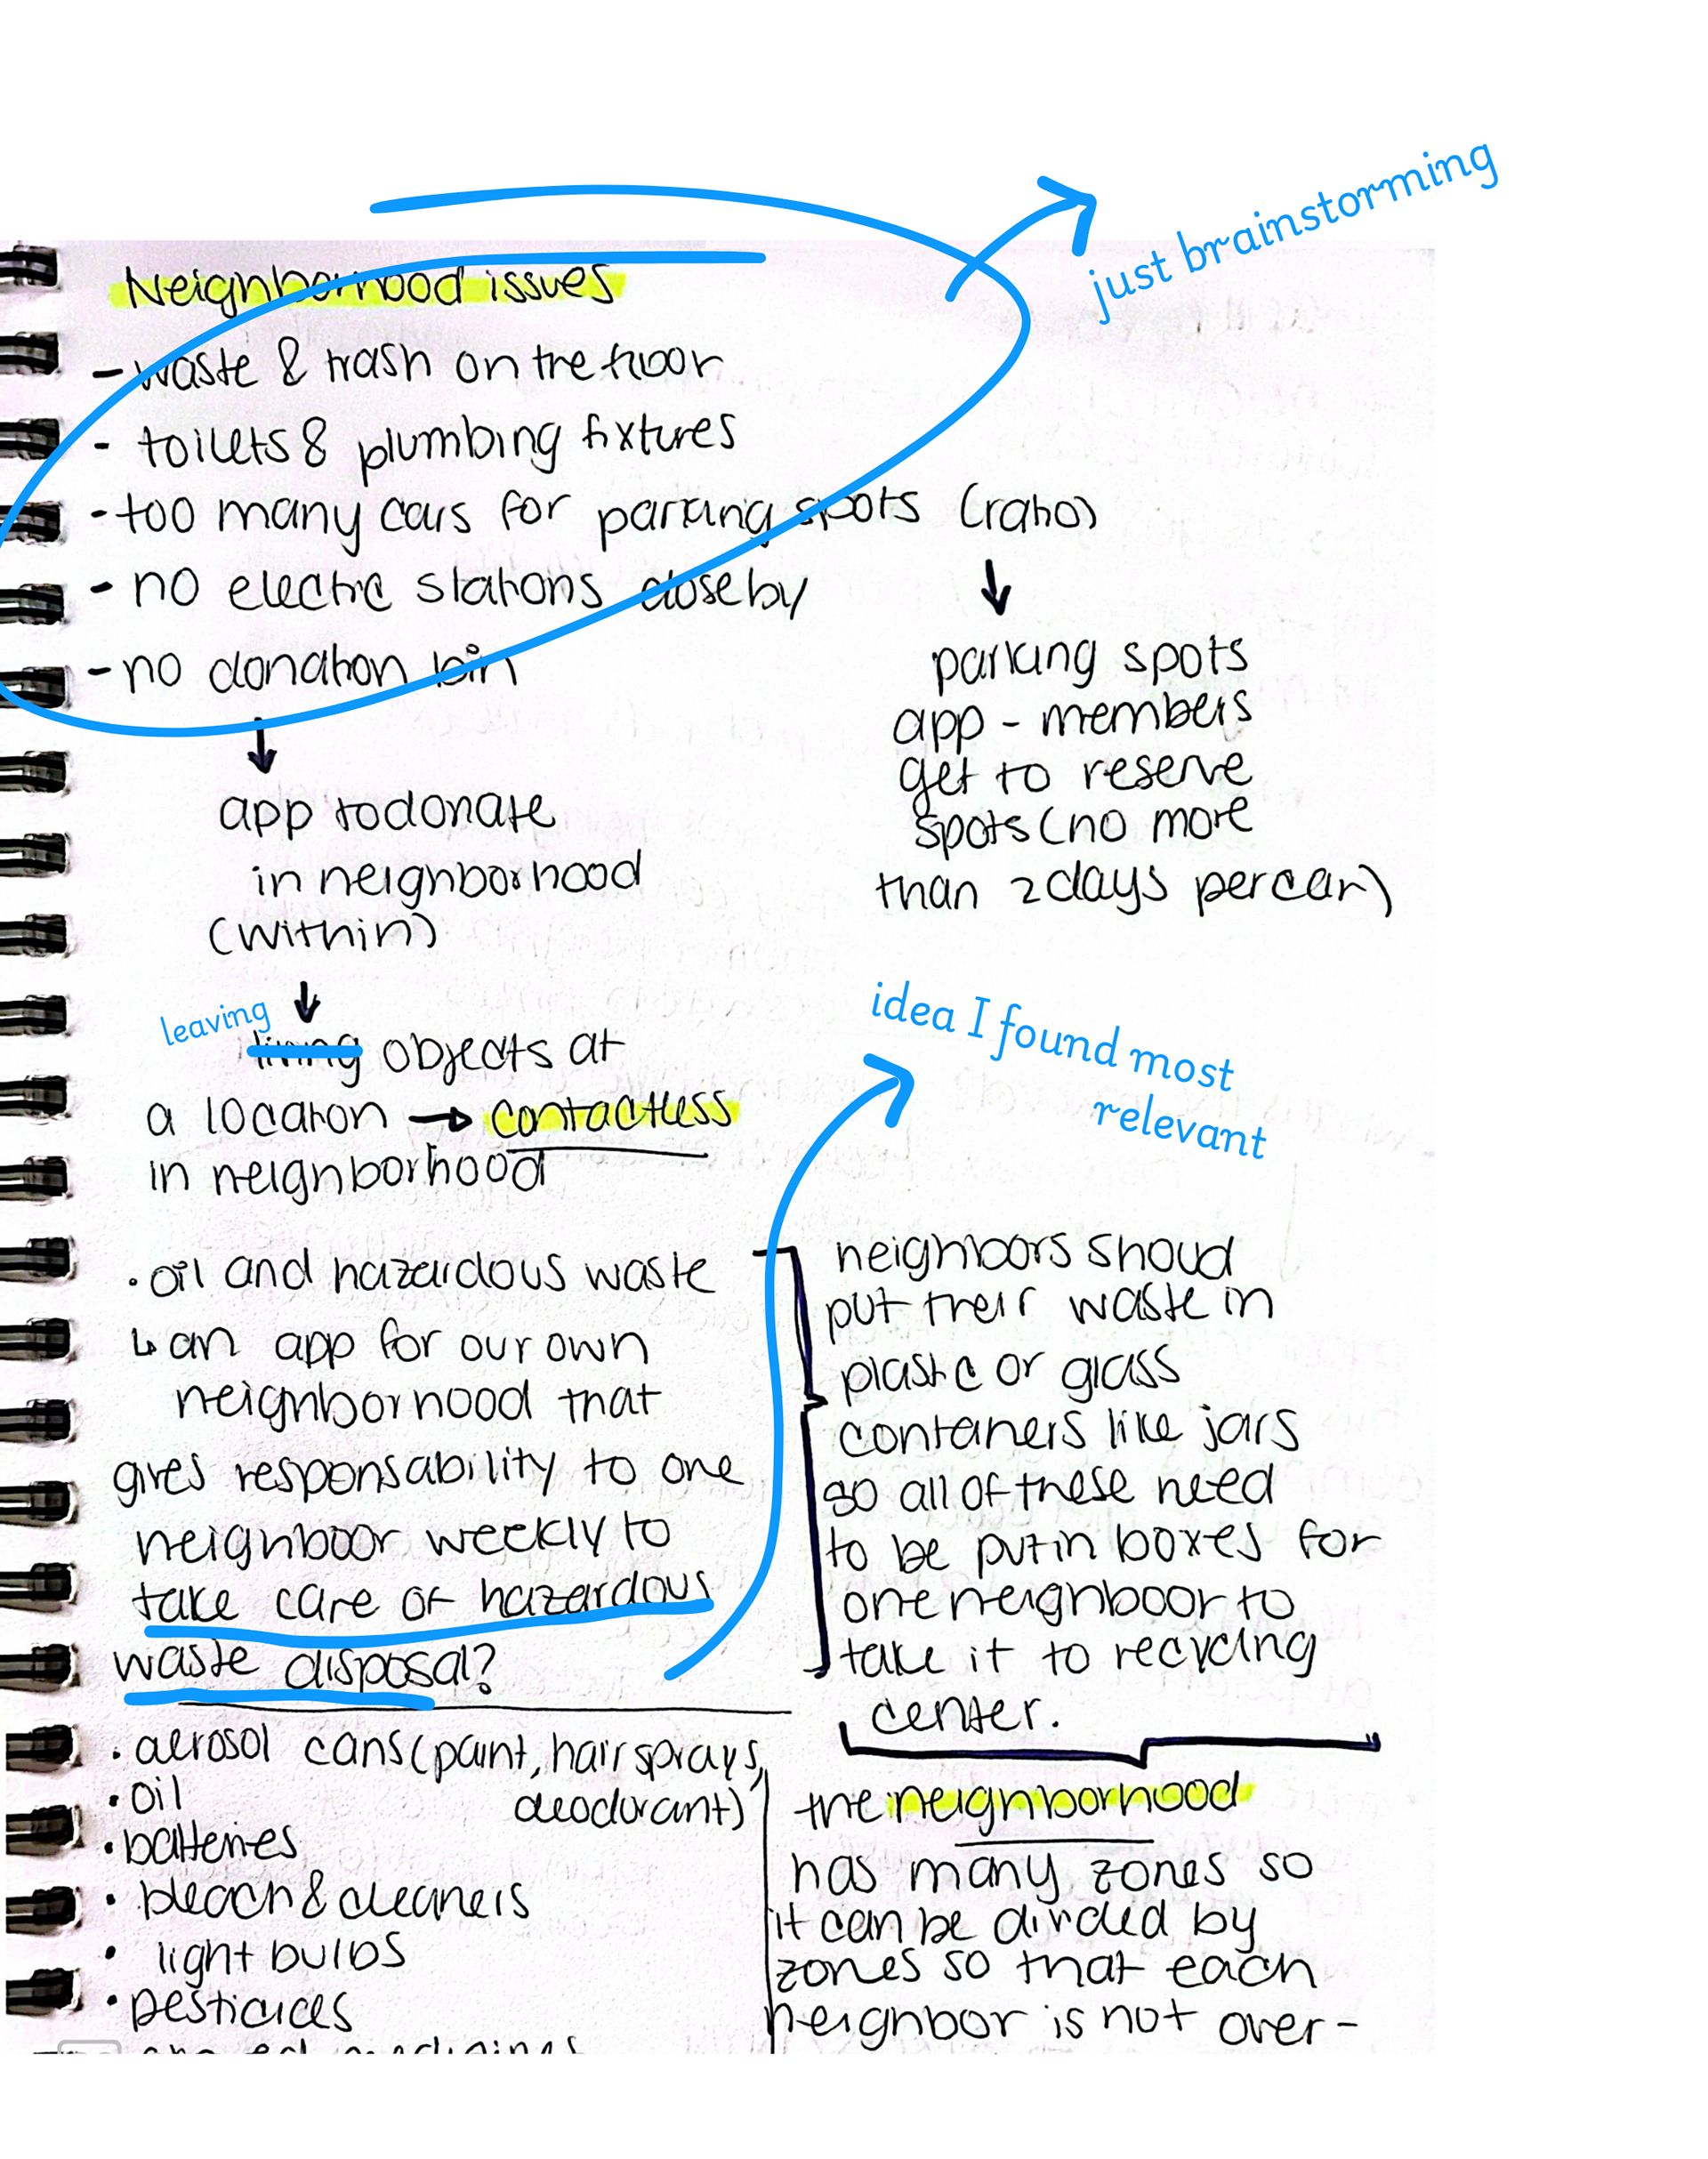 just brainstorming
Neighborhood issues
- waste & trash on the floor
- toilets & plumbing fixtures
- too many cars for parking spots (ratio)
- no electric stations close by
- no donation bin
↓
parking spots
app - members
get to reserve
spots (no more
than 2 days per car)
↓
app to donate
in neighborhood
(within)
↓
leaving
living objects at
a location → contactless
in neighborhood
idea I found most
relevant
• oil and hazardous waste
↳ an app for our own
neighborhood that
gives responsability to one
neighboor weekly to
take care of hazardous
waste disposal?
neighbors shoud
put their waste in
plastic or glass
contaners like jars
so all of these need
to be put in boxes for
one neighboor to
take it to recycling
center.
• aerosol cans (paint, hairsprays,
deodorant)
• oil
• batteries
• bleach & cleaners
• light bulbs
• pesticides
the neighborhood
has many zones so
it can be divided by
zones so that each
neighbor is not over-